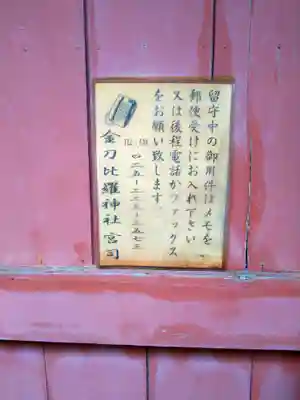 留守中の御用件はメモを、
郵便受けにお入れ下さい
又は後程電話かファックス
をお願い致します。
〇二五一二二三一三五七三
金刀比羅神社 宮司